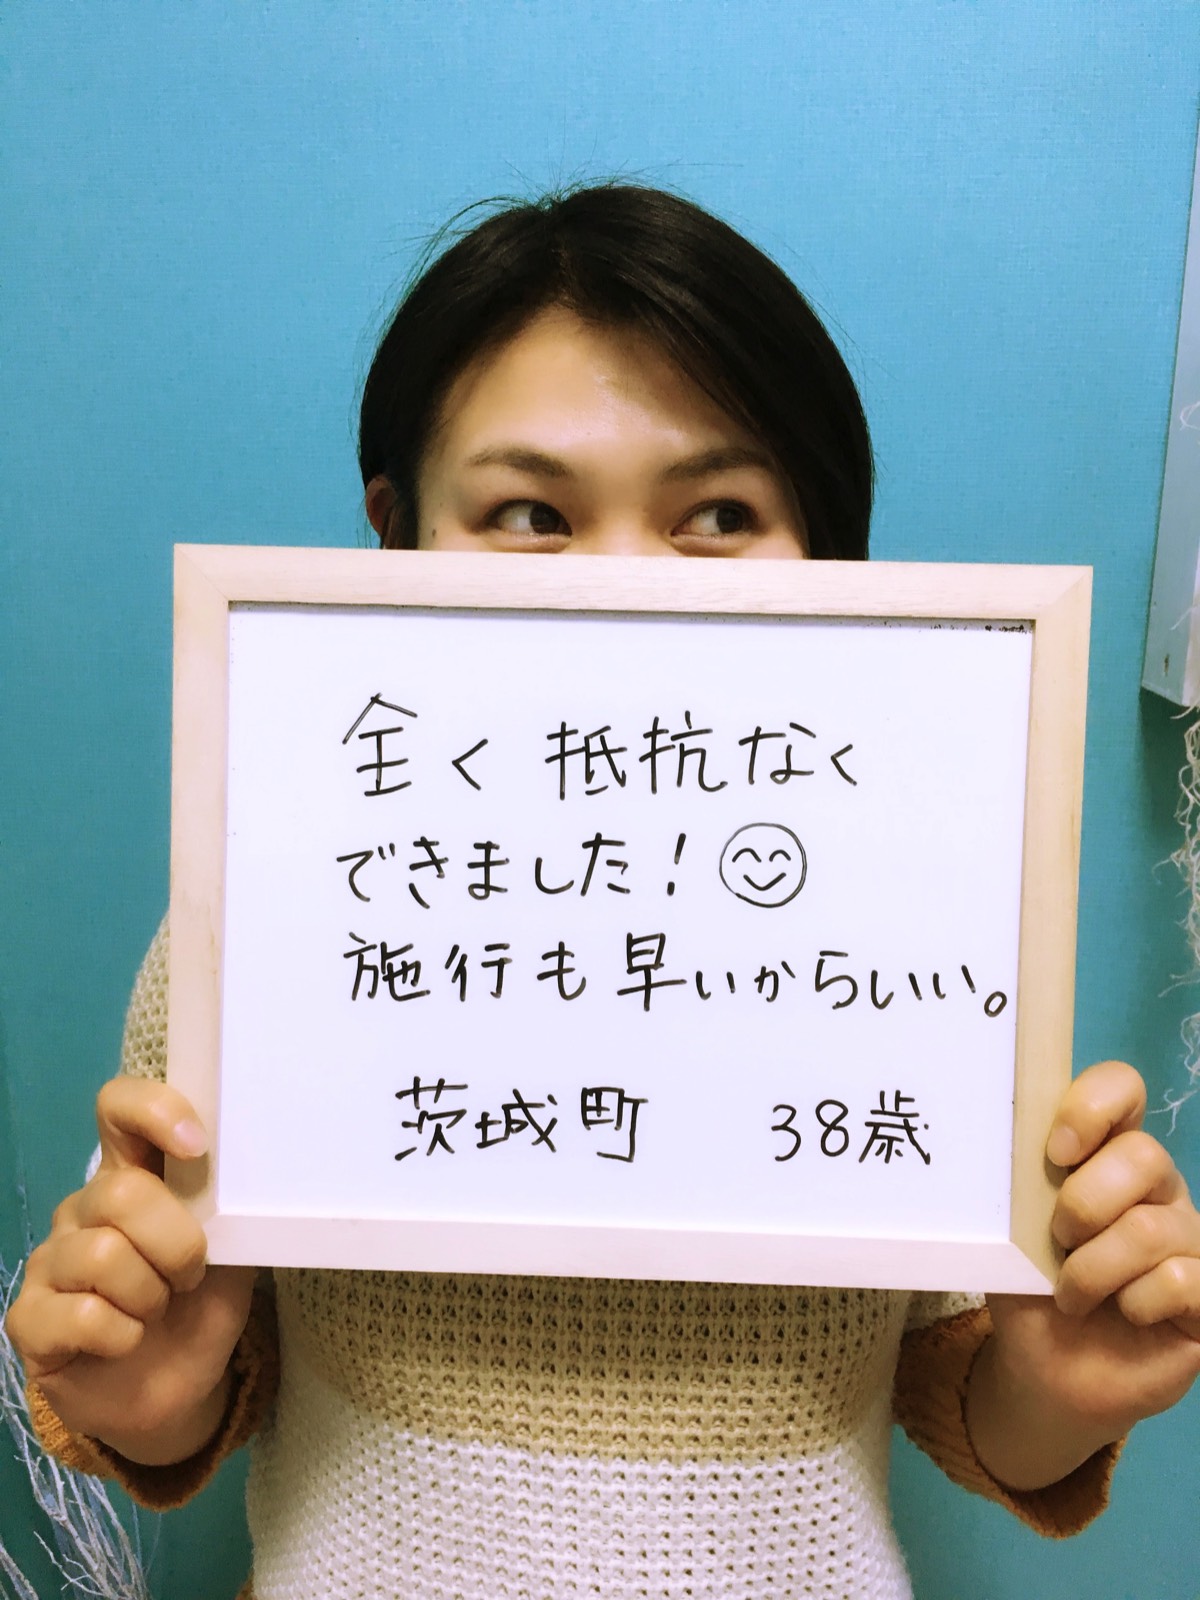 全く抵抗なく
できました!😊
施行も早いからいい。
茨城町 38歳